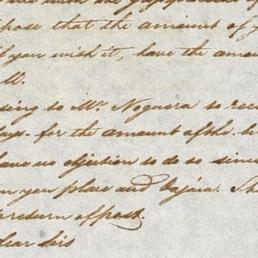 pose that the amount of
if you wish it, have the amou
ll.
sing to Mr Noguera to rec
for the amount of the
have no objection to do so since
you place and
return of post.
dear sir